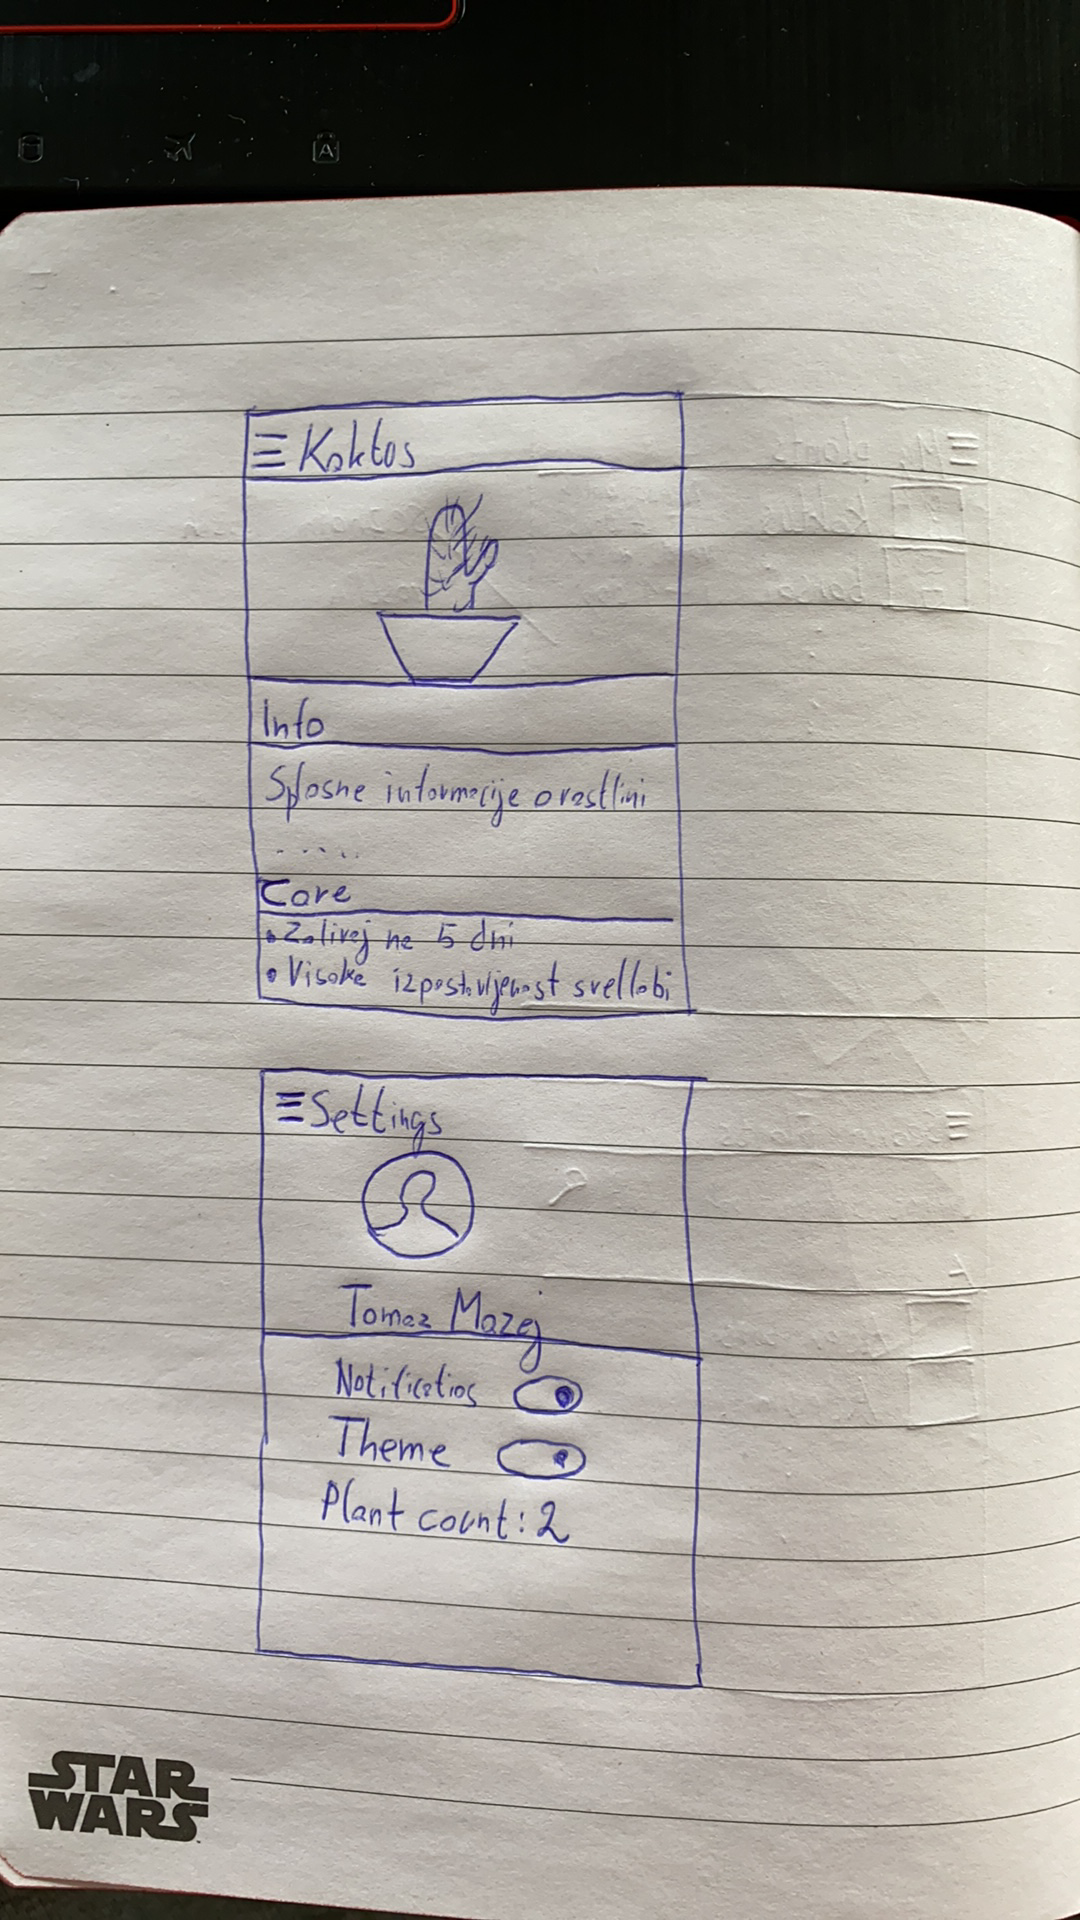 A
Kaktos
Info
Splosne informacije o rastlini
.....
Care
• Zalivaj na 5 dni
• Visoka izpostavljenost svetlobi
Settings
Tomaz Mazej
Notificatios
Theme
Plant count: 2
STAR
WARS